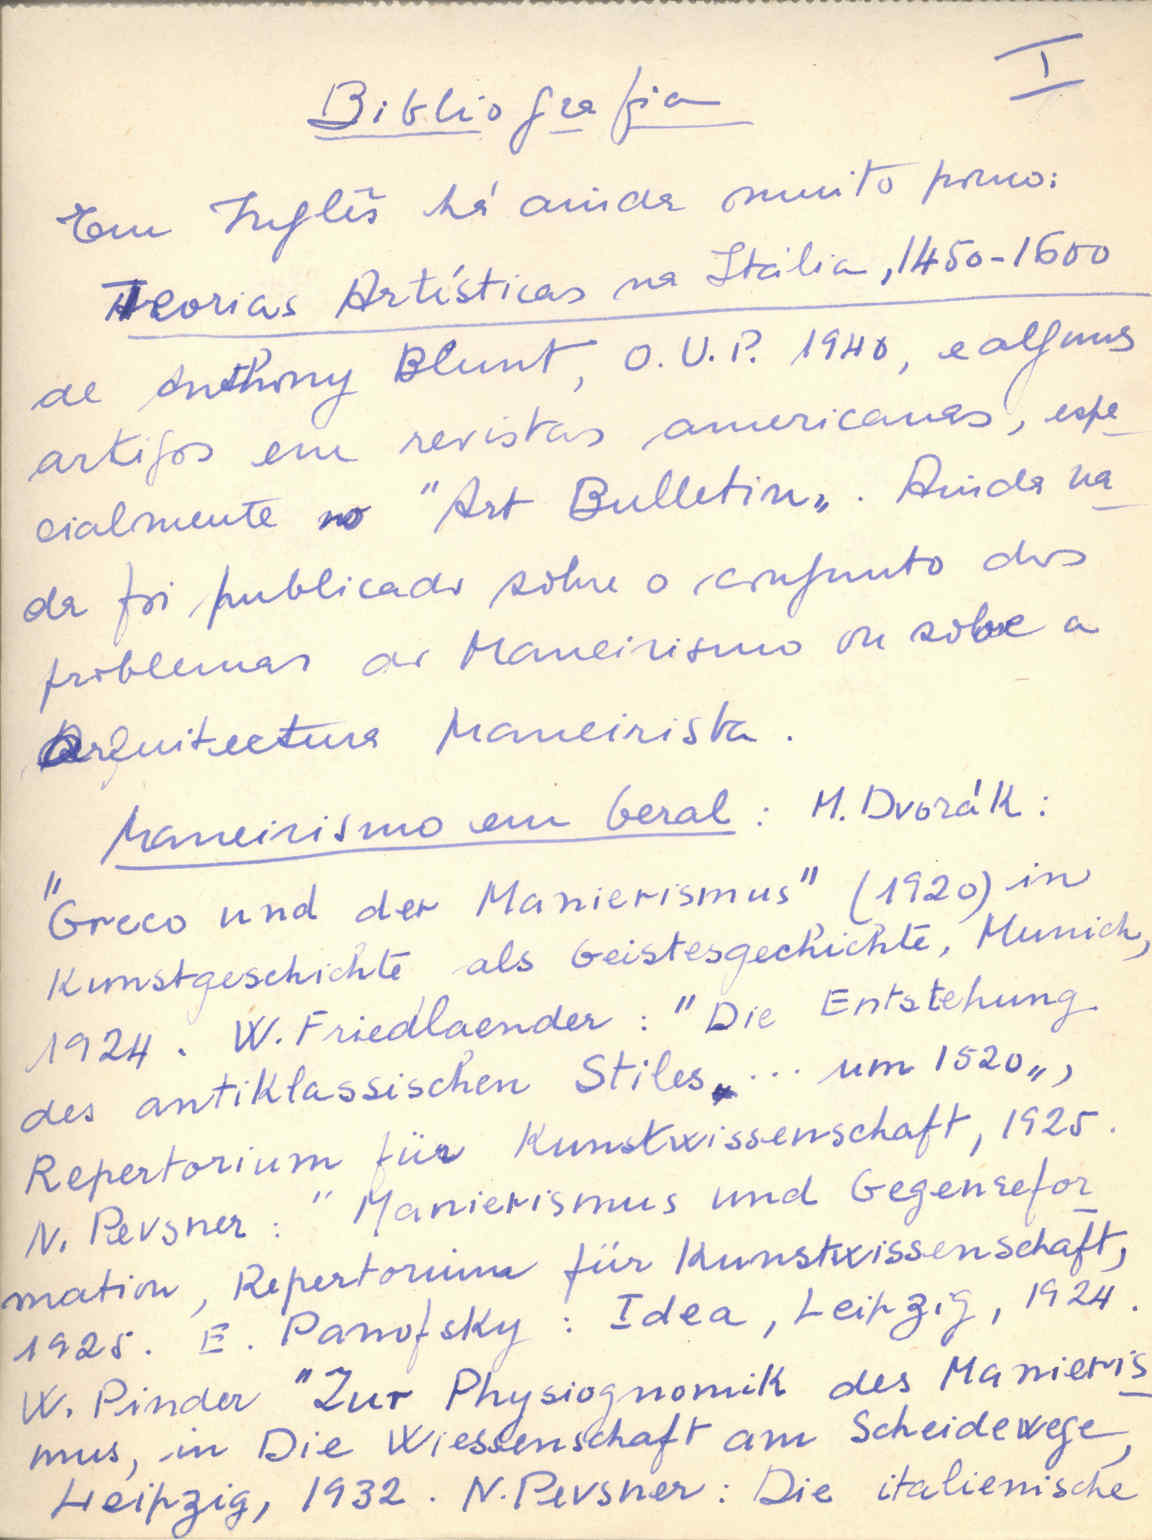 I
Bibliografia
Em Inglês há ainda muito pouco:
Teorias Artísticas na Itália, 1450-1600
de Anthony Blunt, O.U.P. 1940, e alguns
artigos em revistas americanas, espe
cialmente no "Art Bulletin„. Ainda na
da foi publicado sôbre o conjunto dos
problemas do Maneirismo ou sobre a
Arquitectura Maneirista.
Maneirismo em Geral : M. Dvorák :
"Greco und der Manierismus" (1920) in
Kunstgeschichte als Geistesgechichte, Munich,
1924. W. Friedlaender : "Die Entstehung
des antiklassischen Stiles„ ... um 1520„,
Repertorium für Kunstwissenschaft, 1925.
N. Pevsner : "Manierismus und Gegenrefor
mation, Repertorium für Kunstwissenschaft,
1925. E. Panofsky : Idea, Leipzig, 1924.
W. Pinder "Zur Physiognomik des Manieris
mus, in Die Wiessenschaft am Scheidewege,
Leipzig, 1932. N. Pevsner : Die italienische